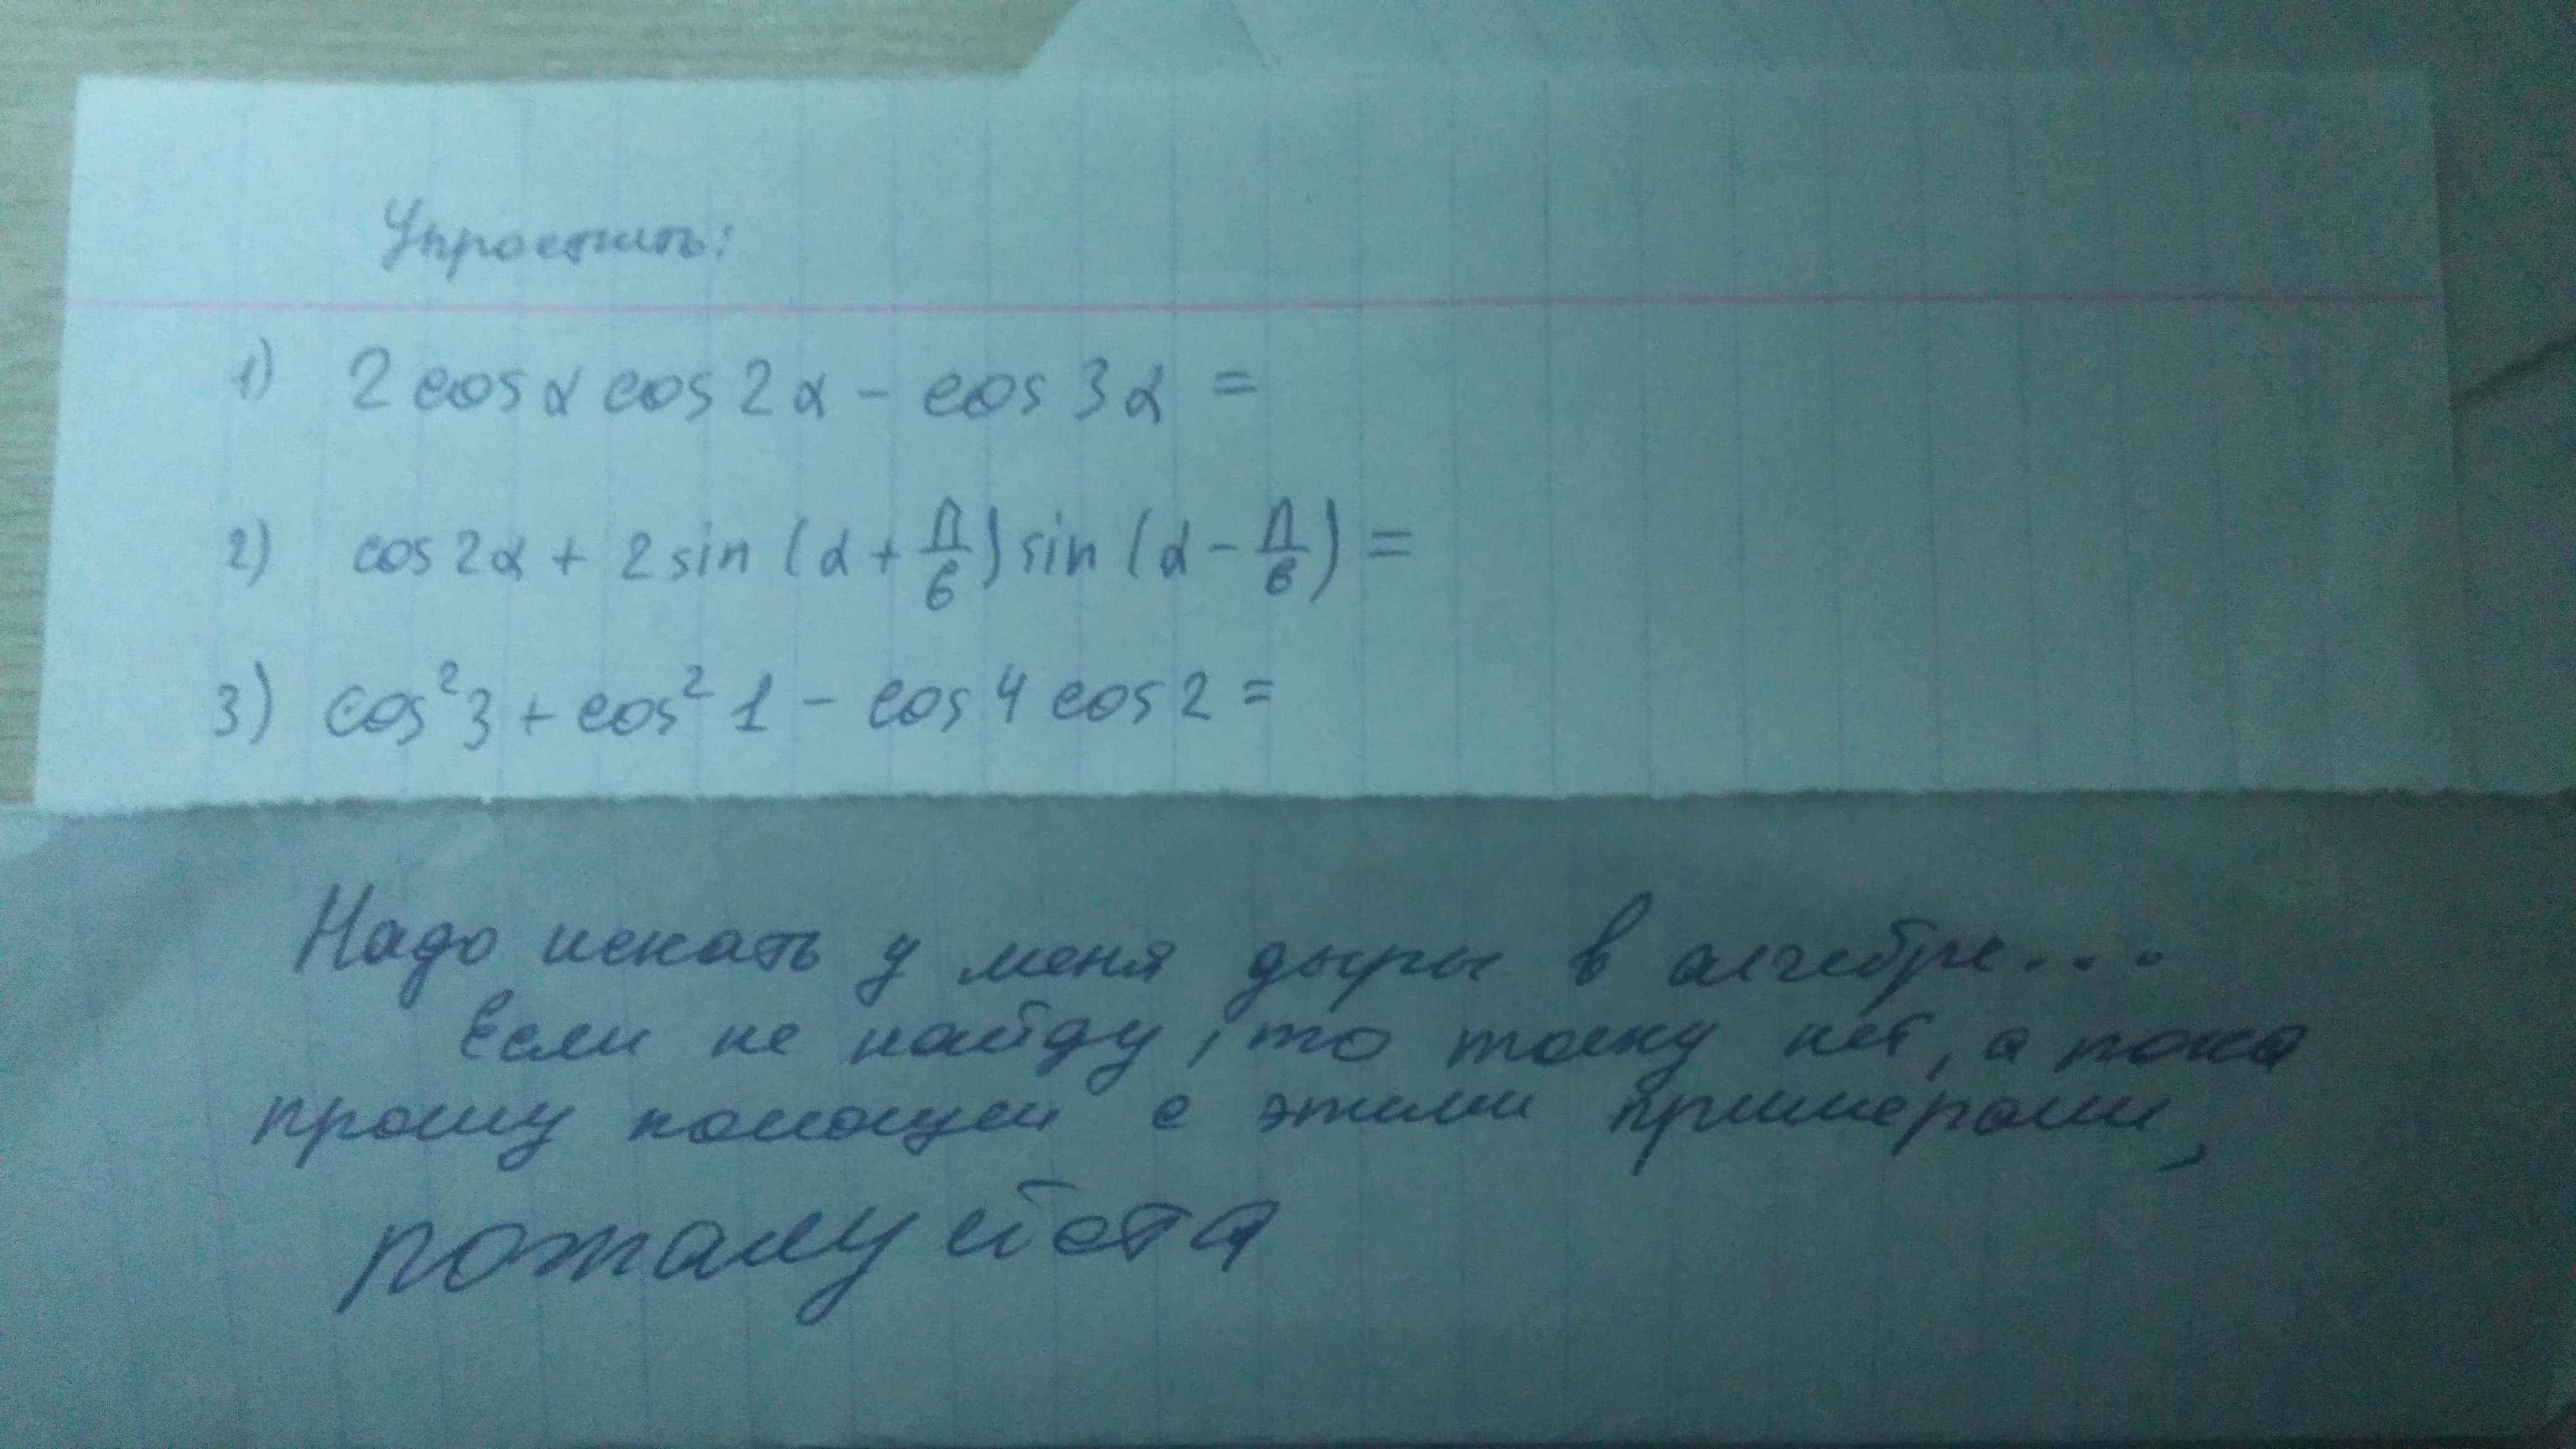 Упростить:
1) 2 cos α cos 2α - cos 3α =
2) cos 2α + 2 sin (α + π/6) sin (α - π/6) =
3) cos²3 + cos²1 - cos 4 cos 2 =
Надо искать у меня дыры в алгебре....
Если не найду, то толку нет, а пока
прошу помощи с этими примерами,
пожалуйста